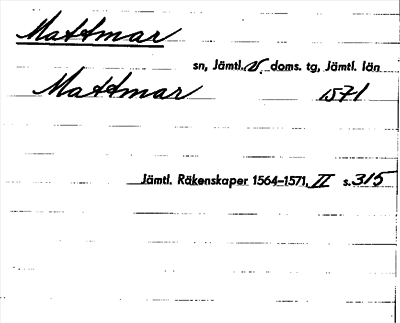 Mattmar
sn, Jämtl. V. doms. tg, Jämtl. län
Mattmar 1571
Jämtl. Räkenskaper 1564–1571, II s. 315